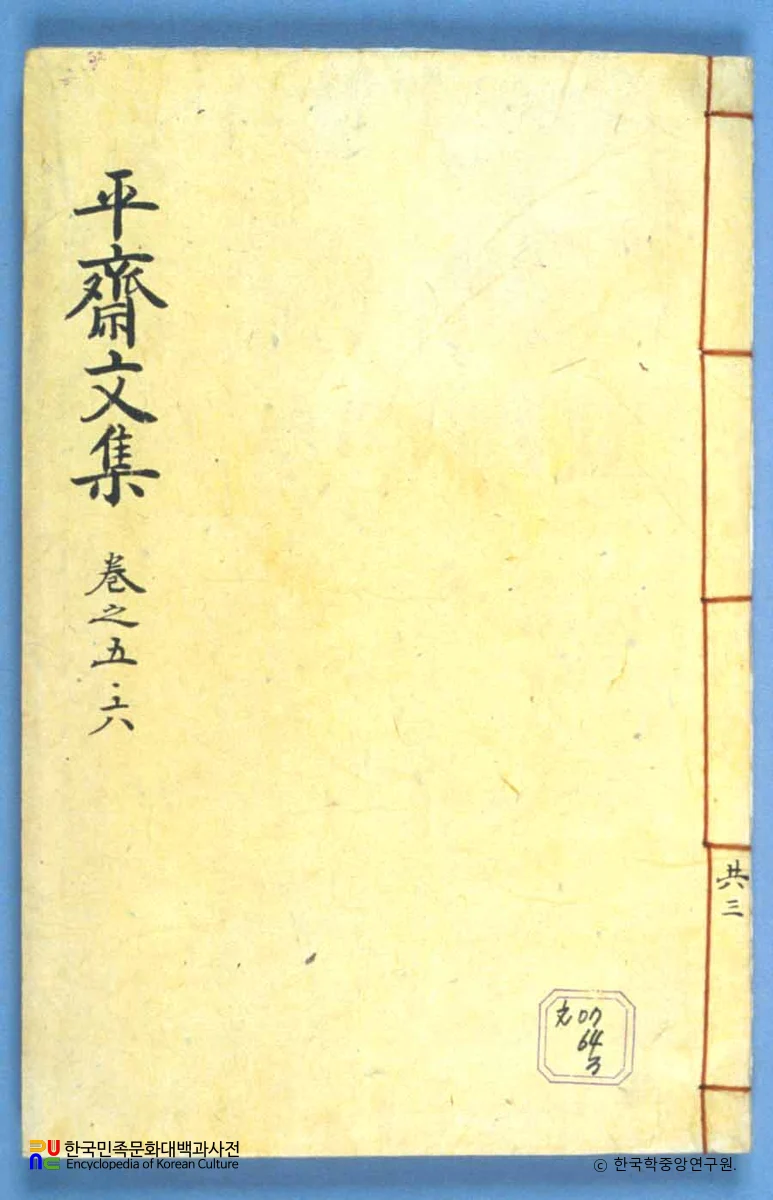 平齋文集
卷之五·六
共三
한국민족문화대백과사전
Encyclopedia of Korean Culture
© 한국학중앙연구원.